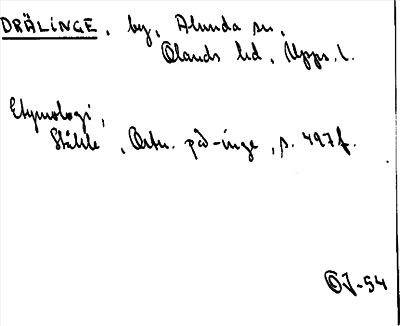 DRÄLINGE, by, Alunda sn,
Olands hd, Upps. l.
Etymologi,
Ståhle, Ortn. på -inge, s. 497 f.
OJ-54